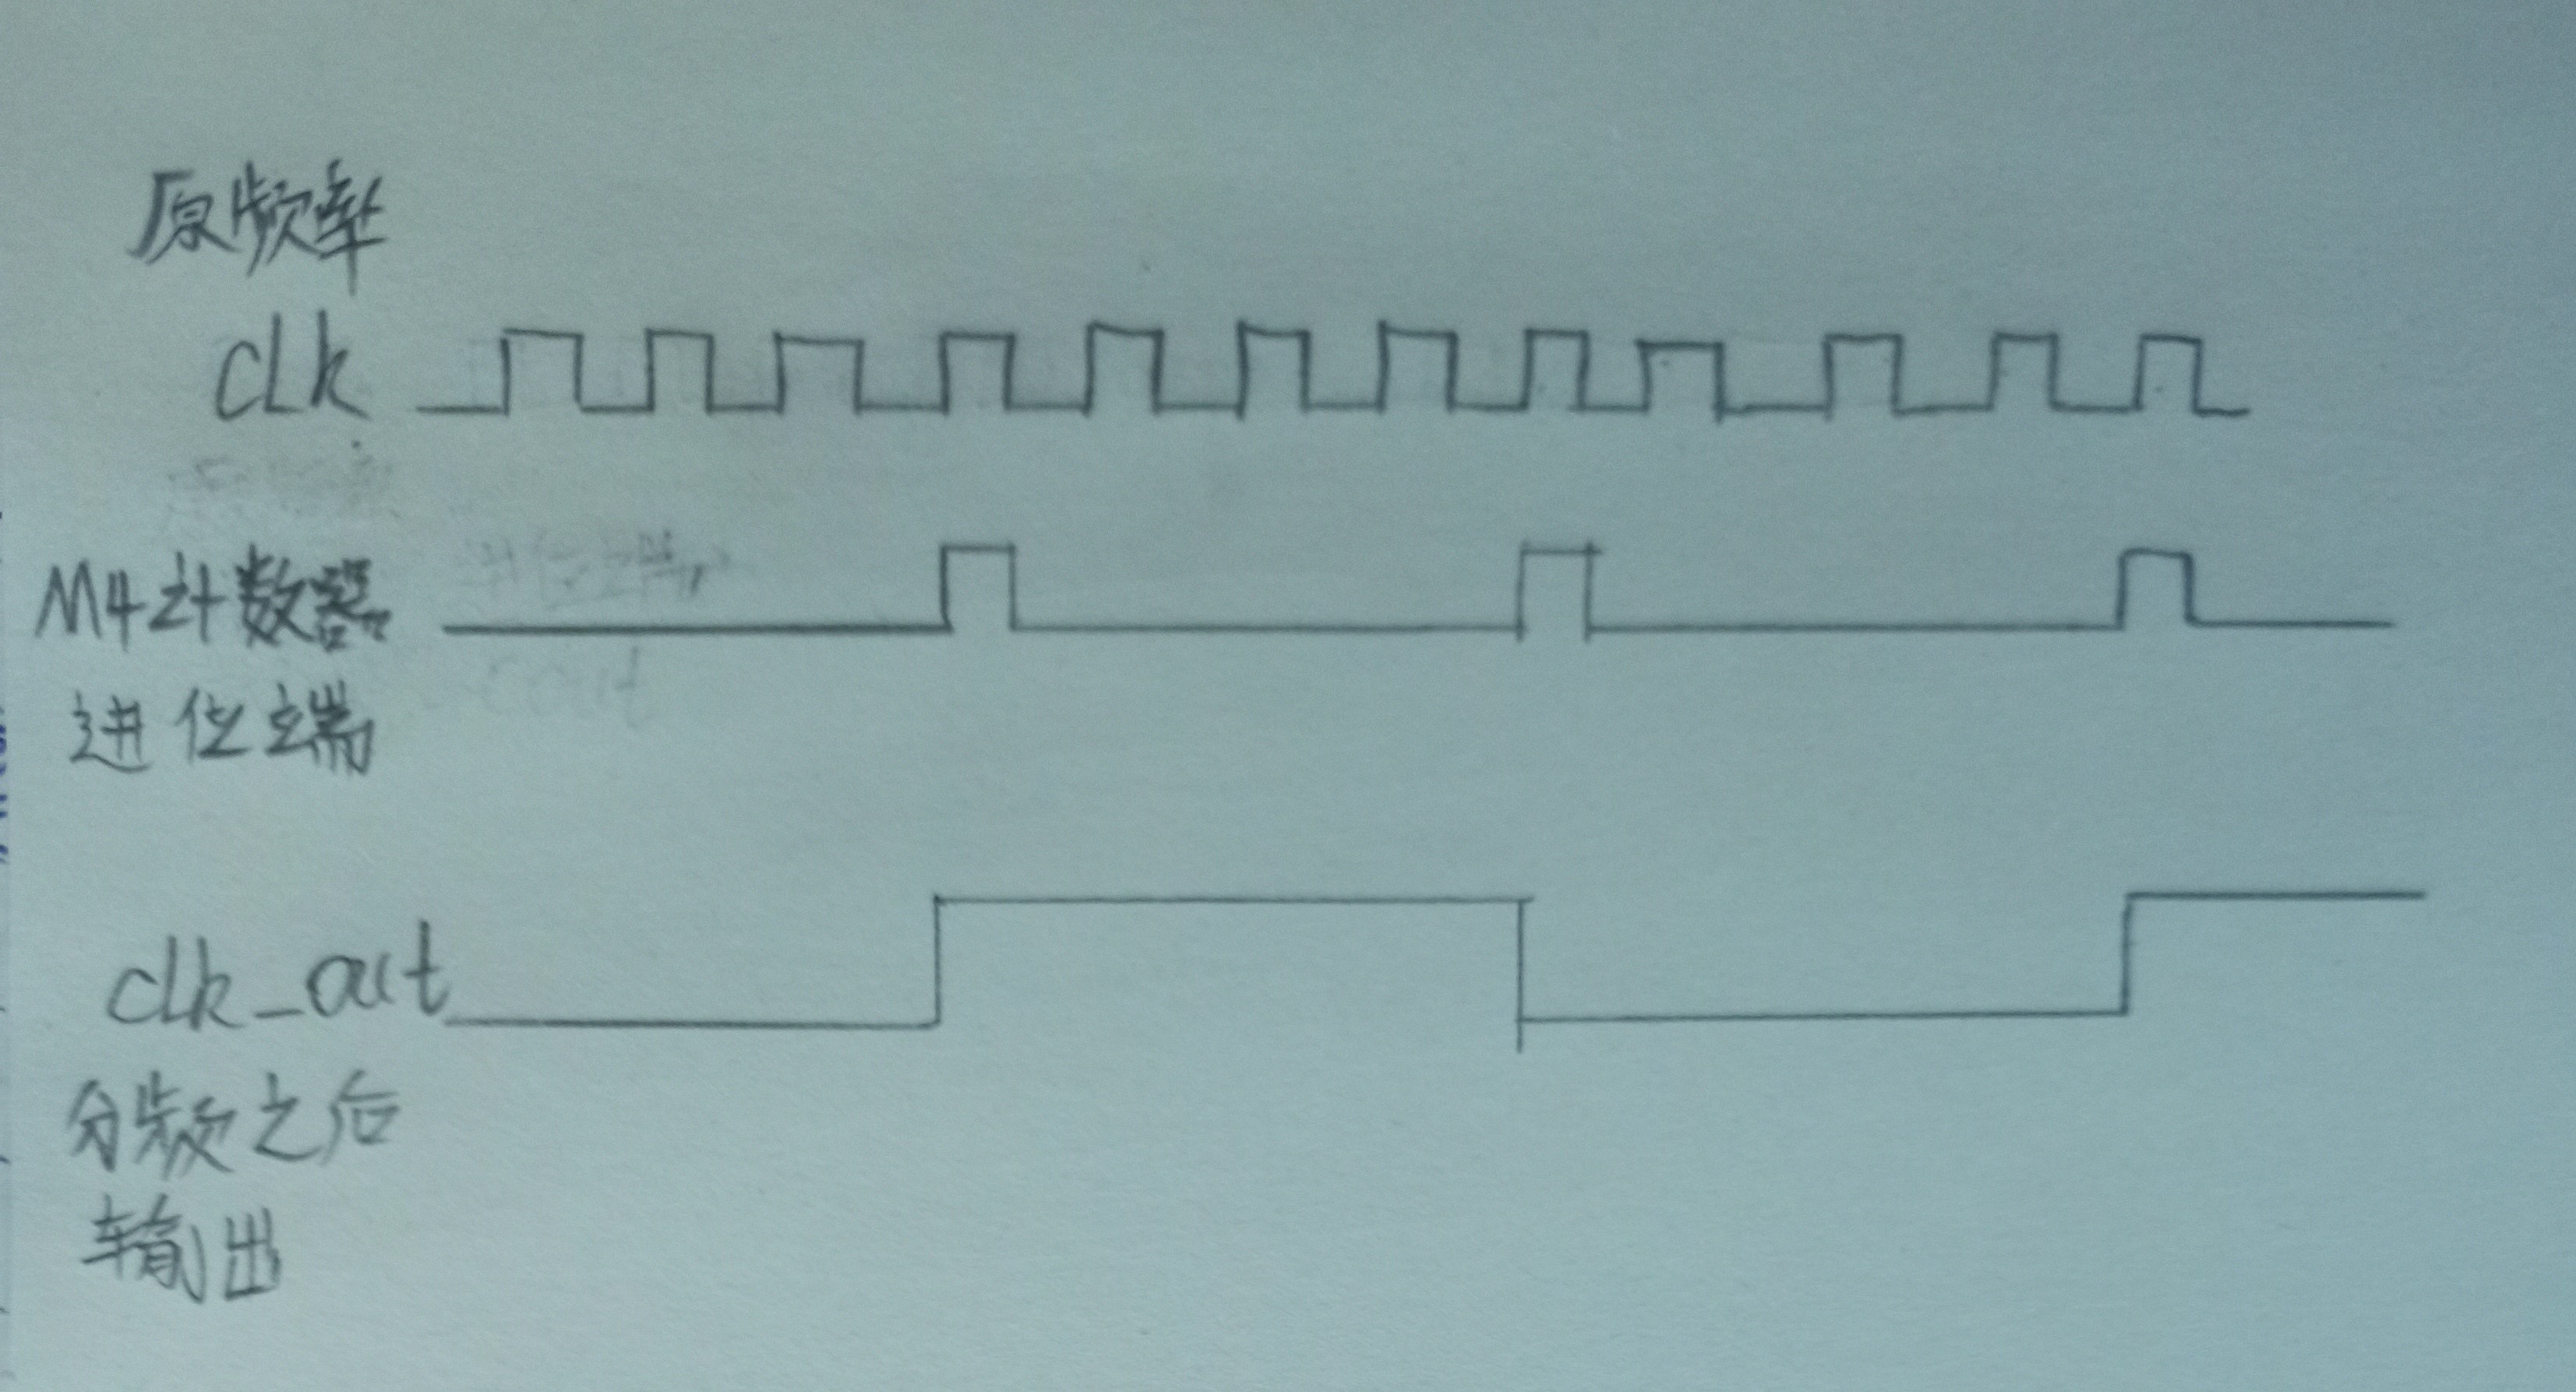 原频率
CLk
M4计数器
进位端
clk_out
分频之后
输出